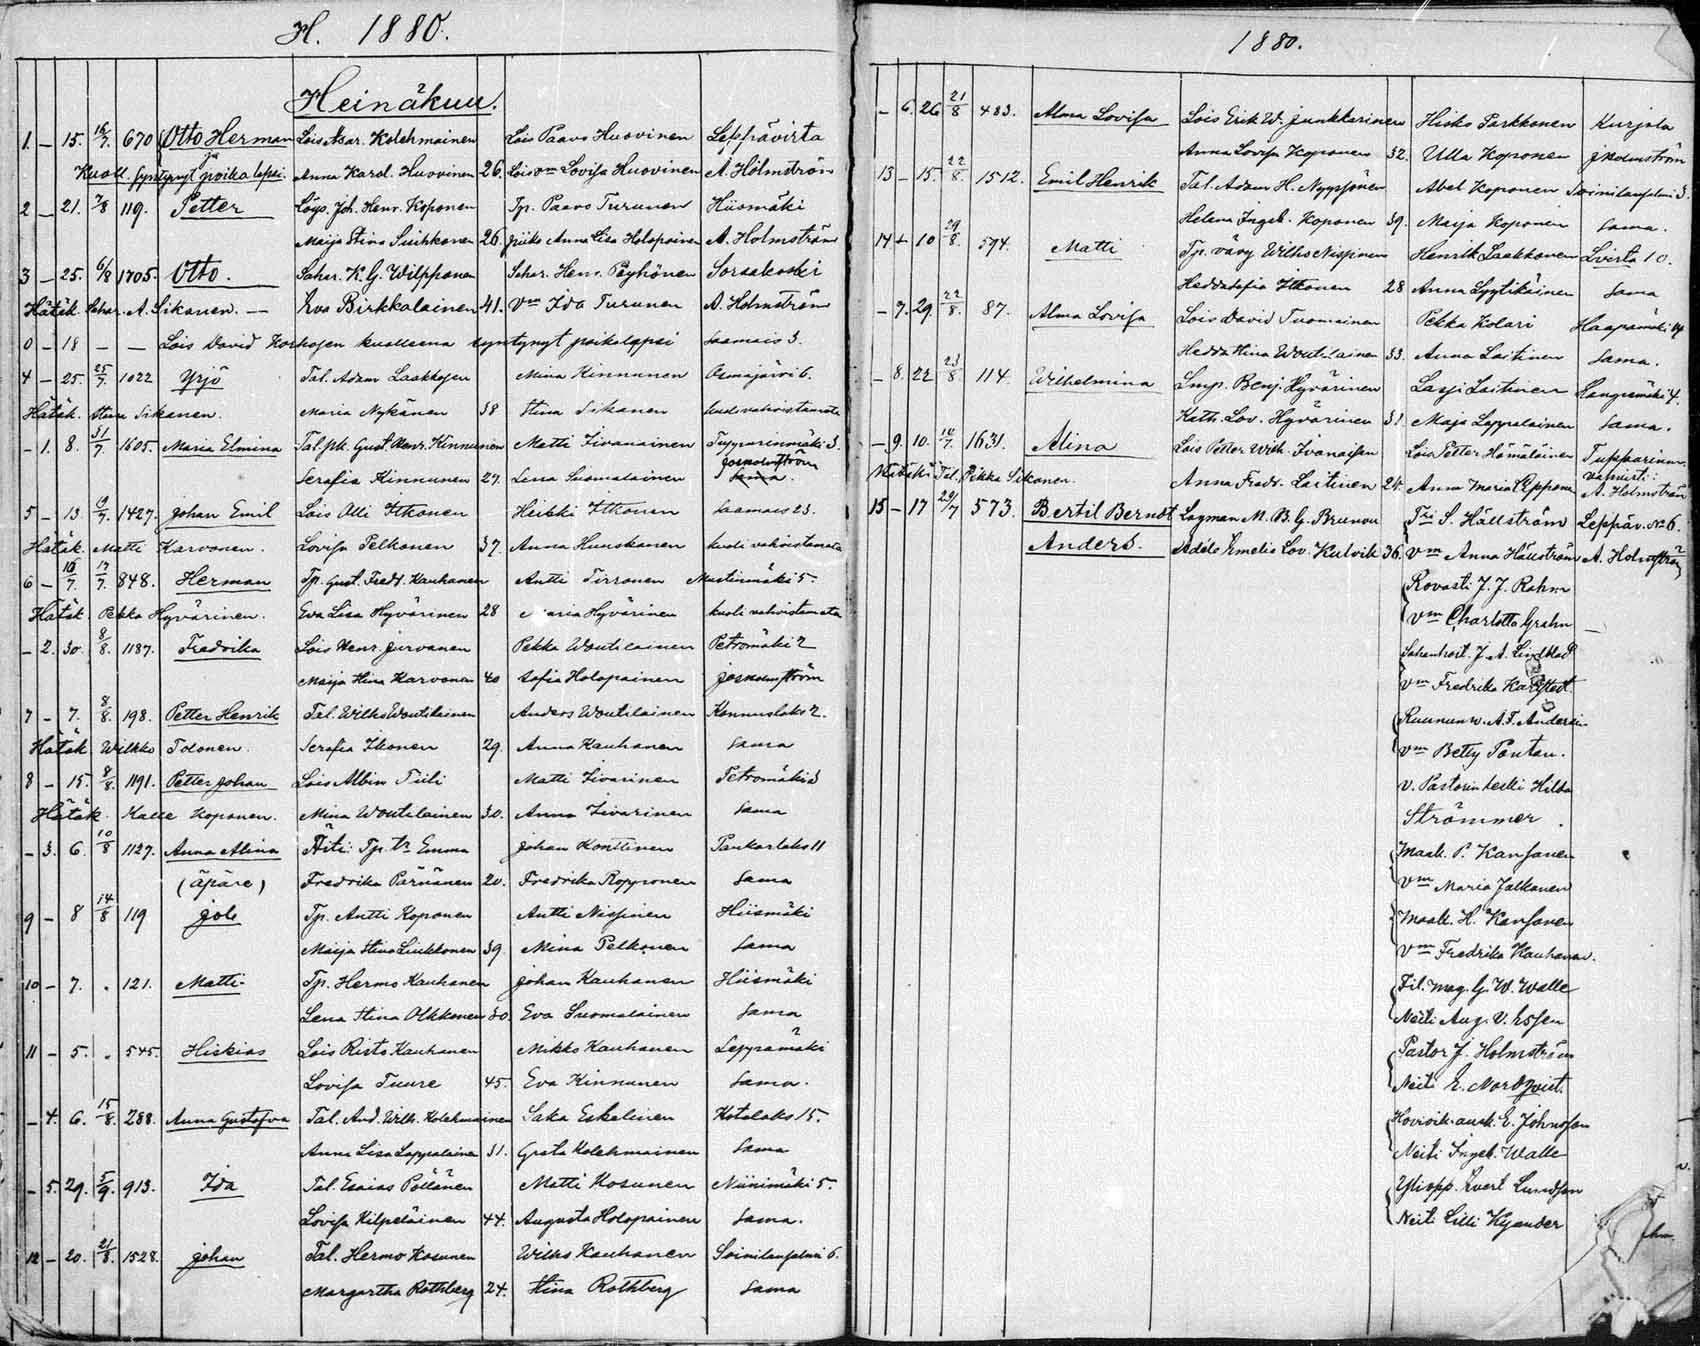 H. 1880.
Heinäkuu.
1. – 15. 16/7. 670 Otto Herman Lois Asar. Kolehmainen Lois Paavo Huovinen Leppävirta
ja
Kuoll. syntynyt poika lapsi. Anna Karol. Huovinen 26. Lois vm Lovisa Huovinen A. Holmström
2 – 21. 7/8 119. Petter Löys. Joh. Henr. Koponen Tp. Paavo Turunen Hiismäki
Maija Stina Suihkonen 26. piika Anna Lisa Holopainen A. Holmström
3 – 25. 6/8 1705. Otto. Sahar. K. G. Wilpponen Sahar. Henr. Pöyhönen Sorsakoski
Hätäk. Sahar. A. Sikanen. – Eva Birkkalainen 41. Vm Ida Turunen A. Holmström
0 – 18 – – Lois David Korhosen kuolleena syntynyt poikalapsi Saamais 3.
4 – 25. 25/7. 1022 Yrjö Tal. Adam Laakkosen Mina Kinnunen Osmajärvi 6.
Hätäk. Stina Sikanen. Maria Nykänen 38 Stina Sikanen kuoli vahvistamata
– 1. 8. 31/7 1605. Maria Elmina Tal. pk. Gust. Henr. Kinnunen Matti Iivanainen Tuppurinmäki 3.
Jos Holmström
Serafia Kinnunen 27. Lena Suomalainen Sama.
5 – 13 19/7. 1427. Johan Emil Lois Olli Itkonen Heikki Itkonen Saamais 23.
Hätäk. Matti Karvonen. Lovisa Pelkonen 37. Anna Hunskanen kuoli vahvistamata
6 – 16/7. 17/7. 848. Herman Tp. Gust. Fredr. Kauhanen Antti Tirronen Mustinmäki 5.
Hätäk. Pekka Hyvärinen. Eva Lisa Hyvärinen 28 Maria Hyvärinen kuoli vahvistamata
– 2. 30. 8/8. 1187. Fredrika Lois Henr. Jurvanen Pekka Woutilainen Petromäki 2
Maija Stina Karvonen 40 Sofia Holopainen Jos Holmström
7 – 7. 8/8. 198. Petter Henrik Tal. Wilks Woutilainen Anders Woutilainen Konnuslaks 2.
Hätäk. Wilkko Tolonen. Serafia Itkonen 29. Anna Kauhanen Sama
8 – 15. 8/8. 1191. Petter Johan Lois Albin Tiili Matti Iivarinen Petromäki 3
Hätäk. Kalle Koponen. Mina Woutilainen 30. Anna Iivarinen Sama
– 3. 6. 10/8 1127. Anna Alina Äiti: Tp. tr Emma Johan Konttinen Paukarlaks 11
(äpäre) Fredrika Pärnänen 20. Fredrika Ropponen Sama
9 – 8 14/8 119 Job Tp. Antti Koponen Antti Nissinen Hiismäki
Maija Stina Liukkonen 39. Mina Pelkonen Sama
10 – 7. „ 121. Matti Tp. Hermo Kauhanen Johan Kauhanen Hiismäki
Lena Stina Olkkonen 30. Eva Suomalainen Sama
11 – 5. „ 545. Hiskias Lois Risto Kauhanen Mikko Kauhanen Leppämäki 2
Lovisa Tuure 45. Eva Kinnunen Sama.
– 4. 6. 15/8. 288. Anna Gustafva Tal. And. Wilh. Kolehmainen Saka Eskelinen Kotalaks 15.
Anna Lisa Lappalainen 31. Greta Kolehmainen Sama
– 5. 29. 5/9. 913. Ida Tal. Esaias Pöllänen Matti Kosunen Niinimäki 5.
Lovisa Kilpeläinen 44. Augusta Holopainen Sama.
12 – 20. 21/8. 1528. Johan Tal. Hermo Kosunen Wilho Kauhanen Soinilansalmi 6.
Margartha Rothberg 24. Stina Rothberg Sama
1880.
– 6. 26 21/8 483. Alma Lovisa Lois Erik W. Junkkarinen Hisko Parkkonen Kurjala
Anna Lovisa Koponen 32. Ulla Koponen J Holmström
13 – 15. 22/8. 1512. Emil Henrik Tal. Adam H. Nyyssönen Abel Koponen Soinilansalmi 3.
Helena Ingeb. Koponen 39. Maija Koponen Sama.
14 – 10 29/8. 594. Matti Tp. vävy Wilho Nissinen Henrik Laakkonen Lvirta 10.
Hedda Sofia Itkonen 28 Anna Lyytikäinen Sama
– 7. 29. 22/8. 87. Alma Lovisa Lois David Tuomainen Pekka Kolari Haapamäki 14
Hedda Stina Woutilainen 33. Anna Laitinen Sama.
– 8. 22 23/8. 114. Wilhelmina Smp. Benj. Hyvärinen Lassi Laitinen Kangasmäki 4.
Kath. Lov. Hyvärinen 31. Maja Lappalainen Sama.
– 9. 10. 10/7. 1631. Alina Lois Petter Wilh. Ivanaisen Lois Petter Hämäläinen Tuppurinm.
Hätäk. Tal. Pekka Sikanen. Anna Fredr. Laitinen 24. Anna Maria Lipponen vahvisti: A. Holmström
15 – 17 29/7 573. Bertil Berndt Lagman M. B. G. Brunou Tri S. Hällström Leppäv. No 6.
Anders. Adéle Emelie Lov. Kulvik 36. Vm Anna Hällström A. Holmström
Rovasti J. J. Rahm
Vm Charlotta Grahn –
J. A. Lindblad
Vm Fredrika Karsted.
Ruunun v. A. F. Andersin
Vm Betty Pontan.
v. Pastorin leski Hilda
Strömmer.
Maak. P. Kansanen
Vm Maria Jalkanen
Maak. H. Kansanen
Vm Fredrika Kauhanen.
Fil. mag. G. W. Walle
Neiti Aug. V. Essen
Pastor J. Holmström
Neiti E. Nordqvist.
Hovioik. ausk. E. Johnsson
Neiti Ingeb. Walle
Yliopp. Evert Lundson
Neiti Lilli Kyander